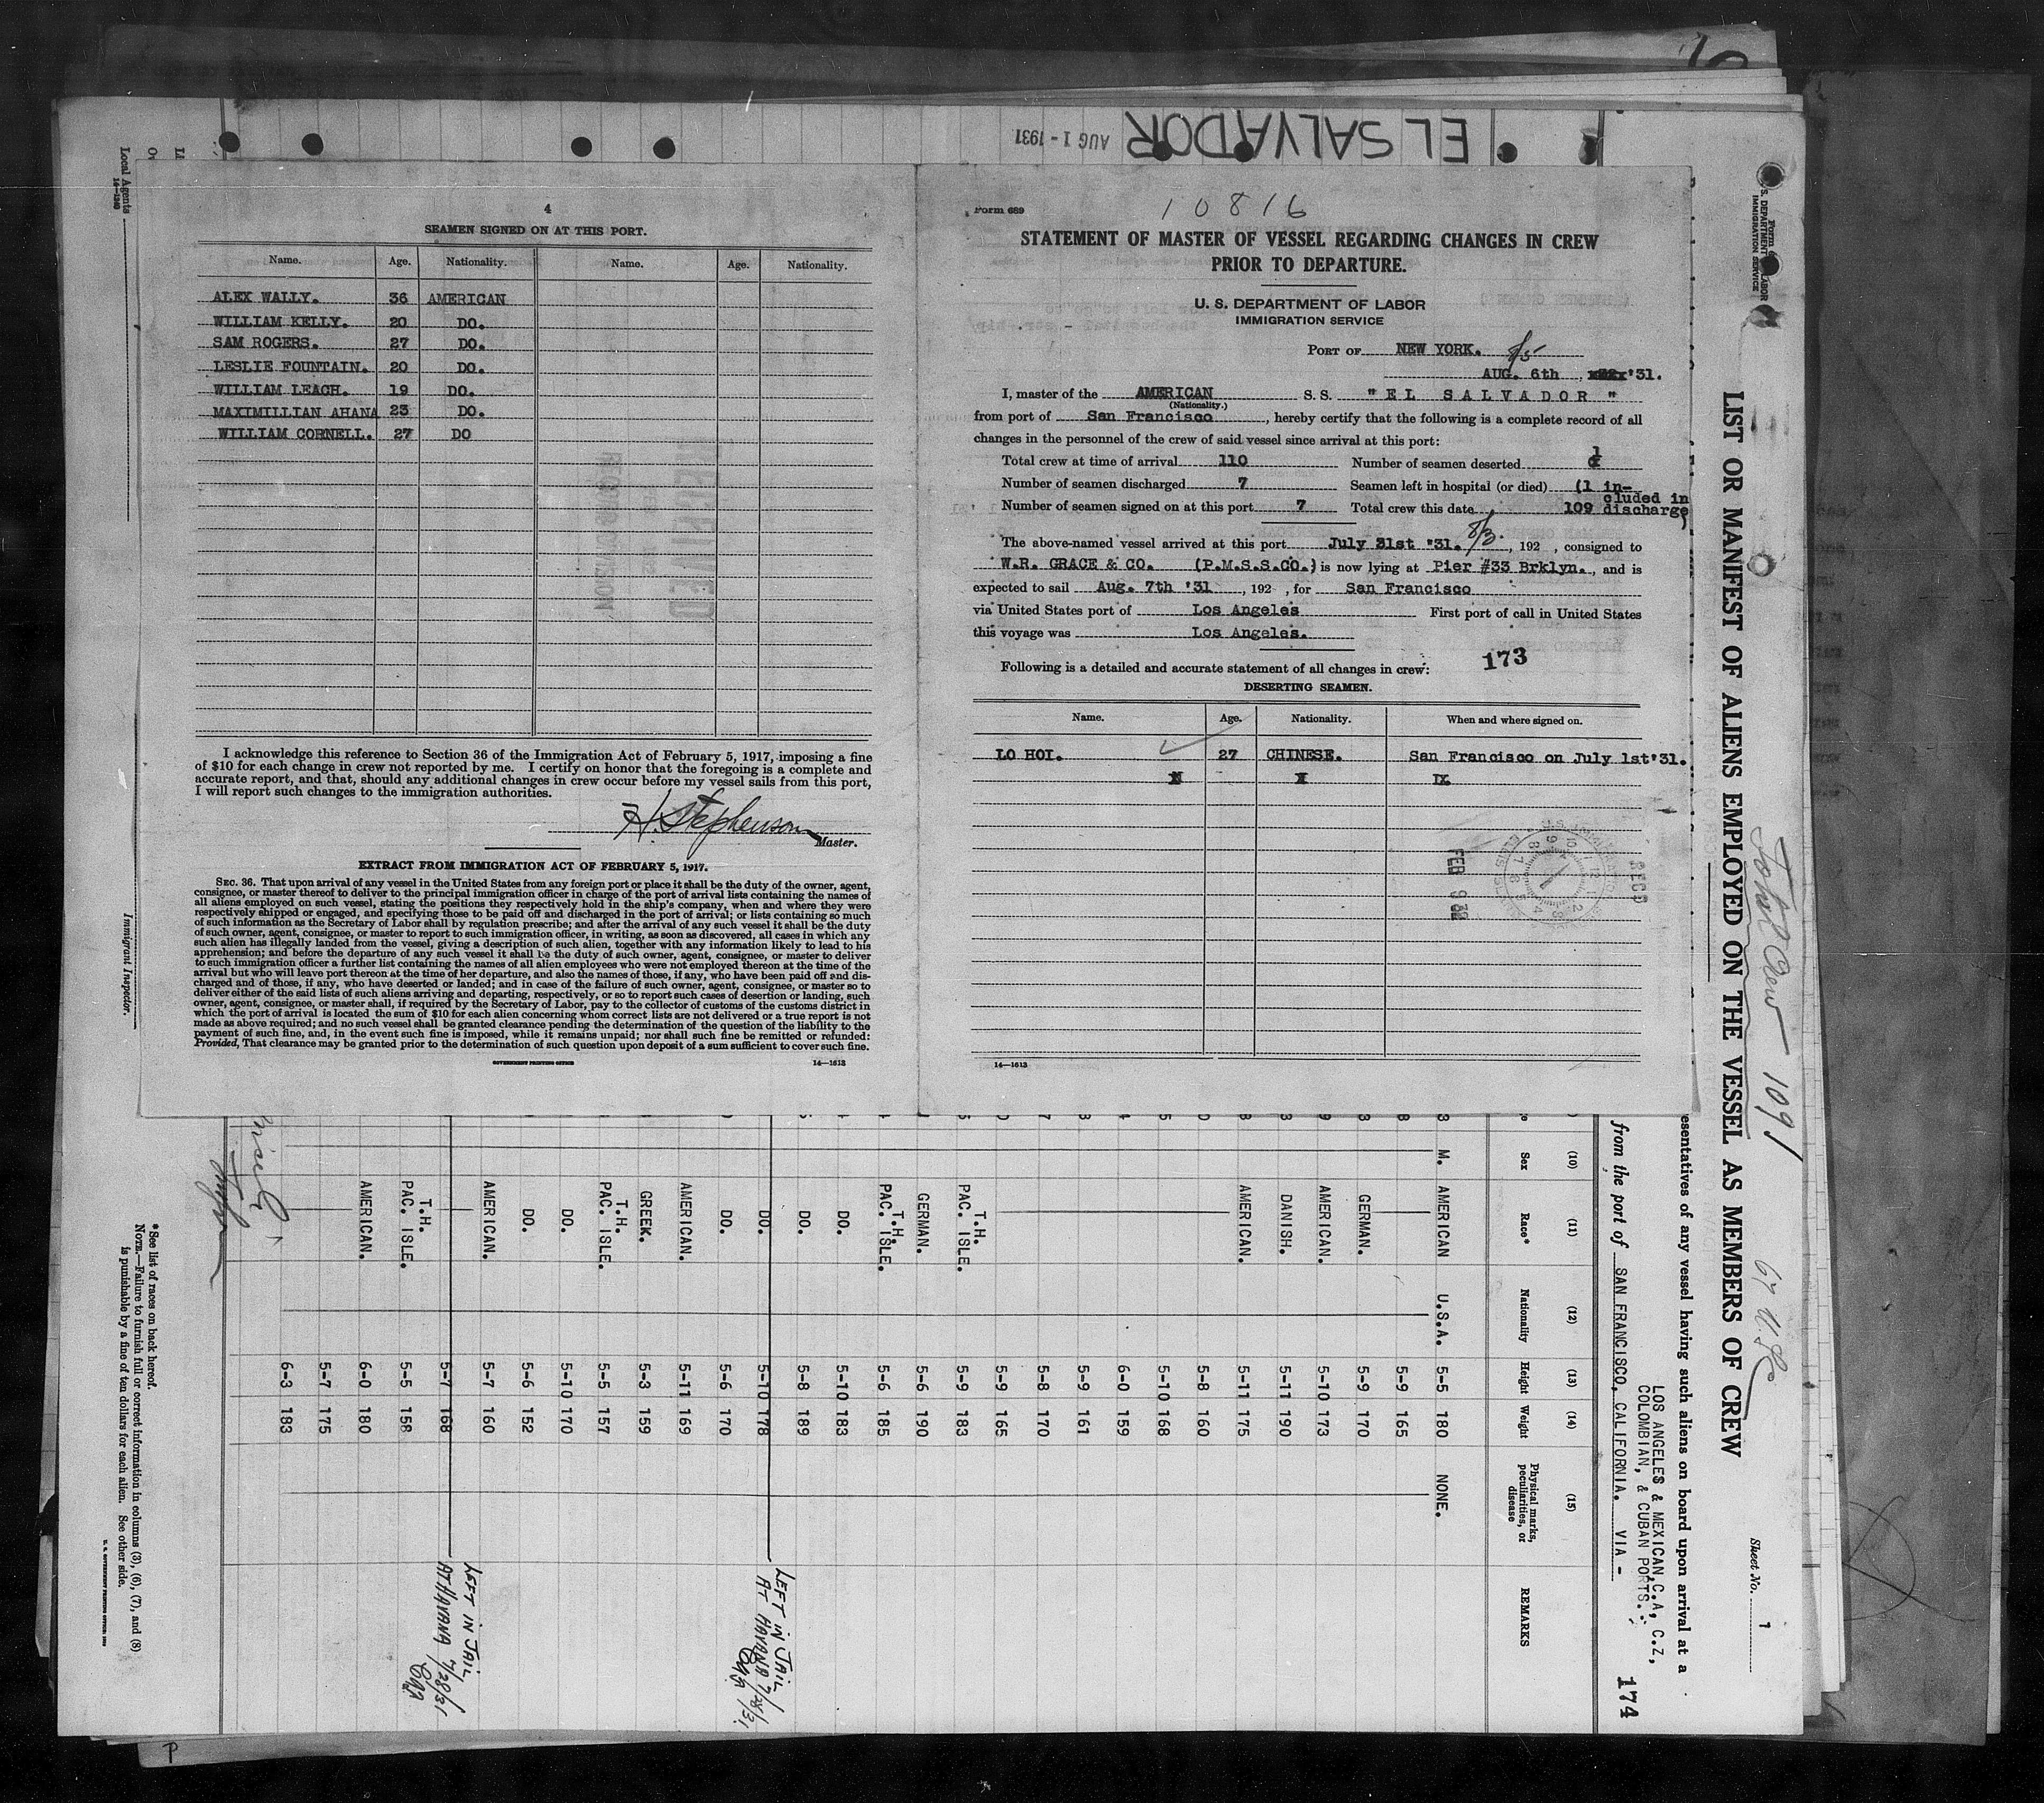 EL SALVADOR
AUG 1 - 1931
4
SEAMEN SIGNED ON AT THIS PORT.
Name. Age. Nationality. Name. Age. Nationality.
ALEX WALLY. 36 AMERICAN
WILLIAM KELLY. 20 DO.
SAM ROGERS. 27 DO.
LESLIE FOUNTAIN. 20 DO.
WILLIAM LEACH. 19 DO.
MAXIMILLIAN AHANA 23 DO.
WILLIAM CORNELL. 27 DO
I acknowledge this reference to Section 36 of the Immigration Act of February 5, 1917, imposing a fine
of $10 for each change in crew not reported by me. I certify on honor that the foregoing is a complete and
accurate report, and that, should any additional changes in crew occur before my vessel sails from this port,
I will report such changes to the immigration authorities.
H. Stephenson
Master.
EXTRACT FROM IMMIGRATION ACT OF FEBRUARY 5, 1917.
SEC. 36. That upon arrival of any vessel in the United States from any foreign port or place it shall be the duty of the owner, agent,
consignee, or master thereof to deliver to the principal immigration officer in charge of the port of arrival lists containing the names of
all aliens employed on such vessel, stating the positions they respectively hold in the ship's company, when and where they were
respectively shipped or engaged, and specifying those to be paid off and discharged in the port of arrival; or lists containing so much
of such information as the Secretary of Labor shall by regulation prescribe; and after the arrival of any such vessel it shall be the duty
of such owner, agent, consignee, or master to report to such immigration officer, in writing, as soon as discovered, all cases in which any
such alien has illegally landed from the vessel, giving a description of such alien, together with any information likely to lead to his
apprehension; and before the departure of any such vessel it shall be the duty of such owner, agent, consignee, or master to deliver
to such immigration officer a further list containing the names of all alien employees who were not employed thereon at the time of the
arrival but who will leave port thereon at the time of her departure, and also the names of those, if any, who have been paid off and dis-
charged and of those, if any, who have deserted or landed; and in case of the failure of such owner, agent, consignee, or master so to
deliver either of the said lists of such aliens arriving and departing, respectively, or so to report such cases of desertion or landing, such
owner, agent, consignee, or master shall, if required by the Secretary of Labor, pay to the collector of customs of the customs district in
which the port of arrival is located the sum of $10 for each alien concerning whom correct lists are not delivered or a true report is not
made as above required; and no such vessel shall be granted clearance pending the determination of the question of the liability to the
payment of such fine, and, in the event such fine is imposed, while it remains unpaid; nor shall such fine be remitted or refunded:
Provided, That clearance may be granted prior to the determination of such question upon deposit of a sum sufficient to cover such fine.
GOVERNMENT PRINTING OFFICE 14—1613
Form 689
10816
STATEMENT OF MASTER OF VESSEL REGARDING CHANGES IN CREW
PRIOR TO DEPARTURE.
U. S. DEPARTMENT OF LABOR
IMMIGRATION SERVICE
PORT OF NEW YORK. 8/5
AUG. 6th, '31.
I, master of the AMERICAN S. S. "EL SALVADOR"
(Nationality.)
from port of San Francisco, hereby certify that the following is a complete record of all
changes in the personnel of the crew of said vessel since arrival at this port:
Total crew at time of arrival 110 Number of seamen deserted 1
Number of seamen discharged 7 Seamen left in hospital (or died) (1 in-
cluded in
Number of seamen signed on at this port 7 Total crew this date 109 discharge)
The above-named vessel arrived at this port July 31st '31. 8/3., 192 , consigned to
W.R. GRACE & CO. (P.M.S.S.CO.) is now lying at Pier #33 Brklyn., and is
expected to sail Aug. 7th '31, 192 , for San Francisco
via United States port of Los Angeles First port of call in United States
this voyage was Los Angeles.
Following is a detailed and accurate statement of all changes in crew: 173
DESERTING SEAMEN.
Name. Age. Nationality. When and where signed on.
LO HOI. 27 CHINESE. San Francisco on July 1st'31.
FEB 9 32
14—1613
LIST OR MANIFEST OF ALIENS EMPLOYED ON THE VESSEL AS MEMBERS OF CREW
Total Crew 109
67 U.S.C.
Sheet No. 1
U. S. DEPARTMENT OF LABOR
IMMIGRATION SERVICE
esentatives of any vessel having such aliens on board upon arrival at a
LOS ANGELES & MEXICAN, C.A, C.Z,
COLOMBIAN, & CUBAN PORTS.
from the port of SAN FRANCISCO, CALIFORNIA. VIA -
174
(10) (11) (12) (13) (14) (15)
Sex Race* Nationality Height Weight Physical marks, peculiarities, or disease REMARKS
M. AMERICAN U.S.A. 5-5 180 NONE.
5-9 165
GERMAN. 5-9 170
AMERICAN. 5-10 173
DANISH. 5-11 190
AMERICAN. 5-11 175
5-8 160
5-10 168
6-0 159
5-9 161
5-8 170
5-9 165
T.H. PAC. ISLE. 5-9 183
GERMAN. 5-6 190
T.H. PAC. ISLE. 5-6 185
DO. 5-10 183
DO. 5-8 189
DO. 5-10 178 LEFT IN JAIL AT HAVANA 7/28/31
DO. 5-6 170
AMERICAN. 5-11 169
GREEK. 5-3 159
T.H. PAC. ISLE. 5-5 157
DO. 5-10 170
DO. 5-6 152
AMERICAN. 5-7 160
5-7 168 LEFT IN JAIL AT HAVANA 7/28/31
T.H. PAC. ISLE. 5-5 158
AMERICAN. 6-0 180
5-7 175
6-3 183
*See list of races on back hereof.
NOTE.—Failure to furnish full or correct information in columns (3), (6), (7), and (8)
is punishable by a fine of ten dollars for each alien. See other side.
Local Agents
14—1240
Immigrant Inspector.
P